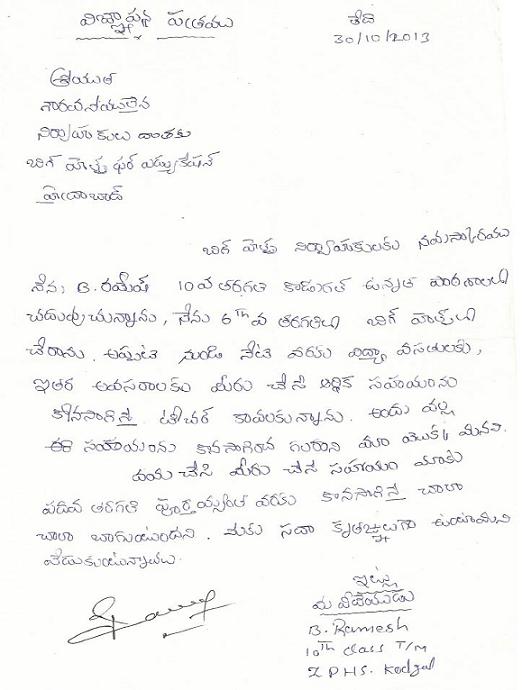 విజ్ఞాపన పత్రము
తేది
30/10/2013
శ్రీయుత
గౌరవనీయులైన
నిర్వాహకులు దాతకు
బిగ్ హెల్ప్ ఫర్ ఎడ్యుకేషన్
హైదాబాద్
బిగ్ హెల్ప్ నిర్వాహకులకు నమస్కారము
నేను B. రమేష్ 10వ తరగతి కాడుగల్ ఉన్నత పాఠశాలలో
చదువుచున్నాను, నేను 6th వ తరగతిలో బిగ్ హెల్ప్ లో
చేరాను. అప్పటి నుండి నేటి వరకు విద్యా వసతులకు,
ఇతర అవసరాలకు మీరు చేసే ఆర్థిక సహాయంను
కొనసాగిస్తే టీచర్ కావలకున్నాను. అందు వల్ల
ఈ సహాయంను కొనసాగించ గలరాని మా యొక్క మనవి.
దయ చేసి మీరు చేసే సహాయం మాకు
పదివ తరగతి పూర్తయ్యేంత వరకు కొనసాగిస్తే చాలా
చాలా బాగుంటుందని. మీకు సదా కృతజ్ఞులుగా ఉంటామని
వేడుకుంటున్నాము.
ఇట్లు
మీ విదేయుడు
B. Ramesh
10th class T/M
Z PHS. Kodgal